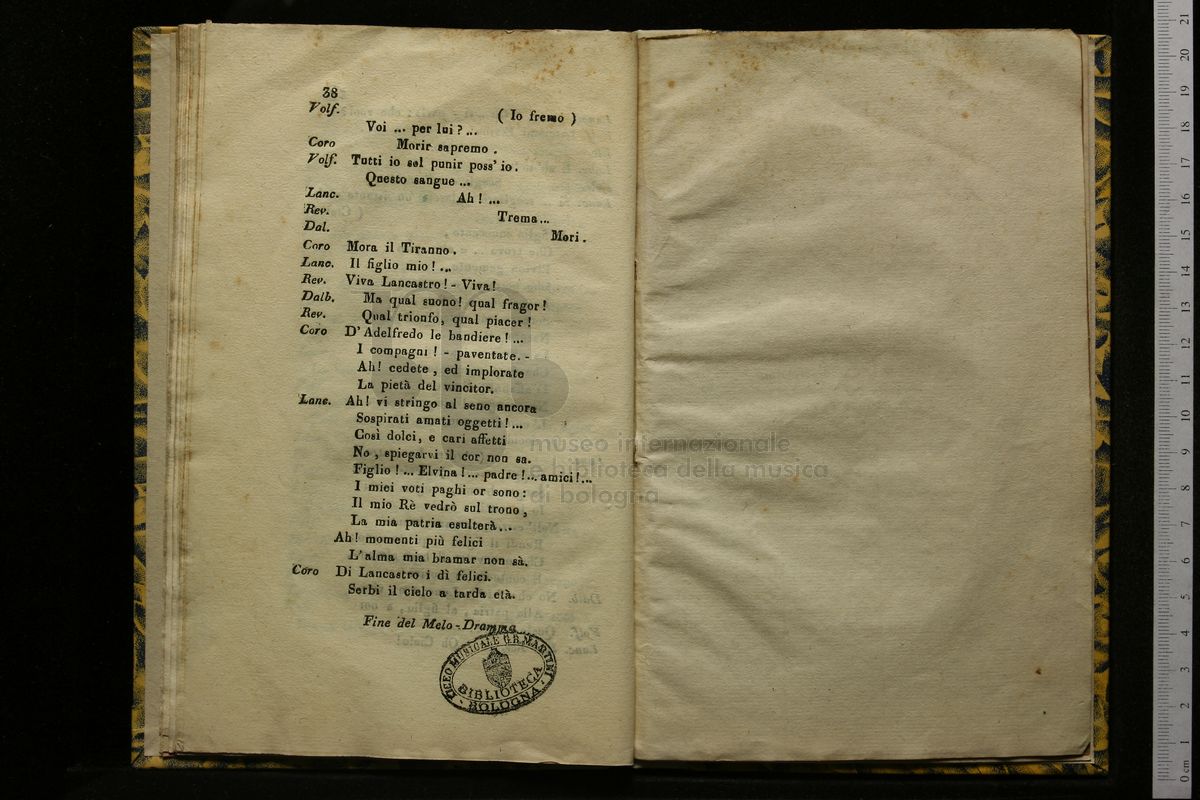 38
Volf. ( Io fremo )
Voi ... per lui ? ...
Coro Morir sapremo .
Volf. Tutti io sol punir poss' io .
Questo sangue ...
Lanc. Ah ! ...
Rev. Trema ...
Dal. Mori .
Coro Mora il Tiranno .
Lanc. Il figlio mio ! ...
Rev. Viva Lancastro ! - Viva !
Dalb. Ma qual suono ! qual fragor !
Rev. Qual trionfo, qual piacer !
Coro D' Adelfredo le bandiere ! ...
I compagni ! - paventate. -
Ah! cedete , ed implorate
La pietà del vincitor.
Lanc. Ah! vi stringo al seno ancora
Sospirati amati oggetti ! ...
Così dolci, e cari affetti
No , spiegarvi il cor non sa.
Figlio ! ... Elvina ! ... padre ! ... amici ! ...
I miei voti paghi or sono :
Il mio Rè vedrò sul trono ,
La mia patria esulterà ...
Ah! momenti più felici
L' alma mia bramar non sà.
Coro Di Lancastro i dì felici.
Serbi il cielo a tarda età.
Fine del Melo-Dramma
LICEO MUSICALE G.B. MARTINI
BIBLIOTECA
BOLOGNA
museo internazionale
e biblioteca della musica
di bologna
0 cm 1 2 3 4 5 6 7 8 9 10 11 12 13 14 15 16 17 18 19 20 21